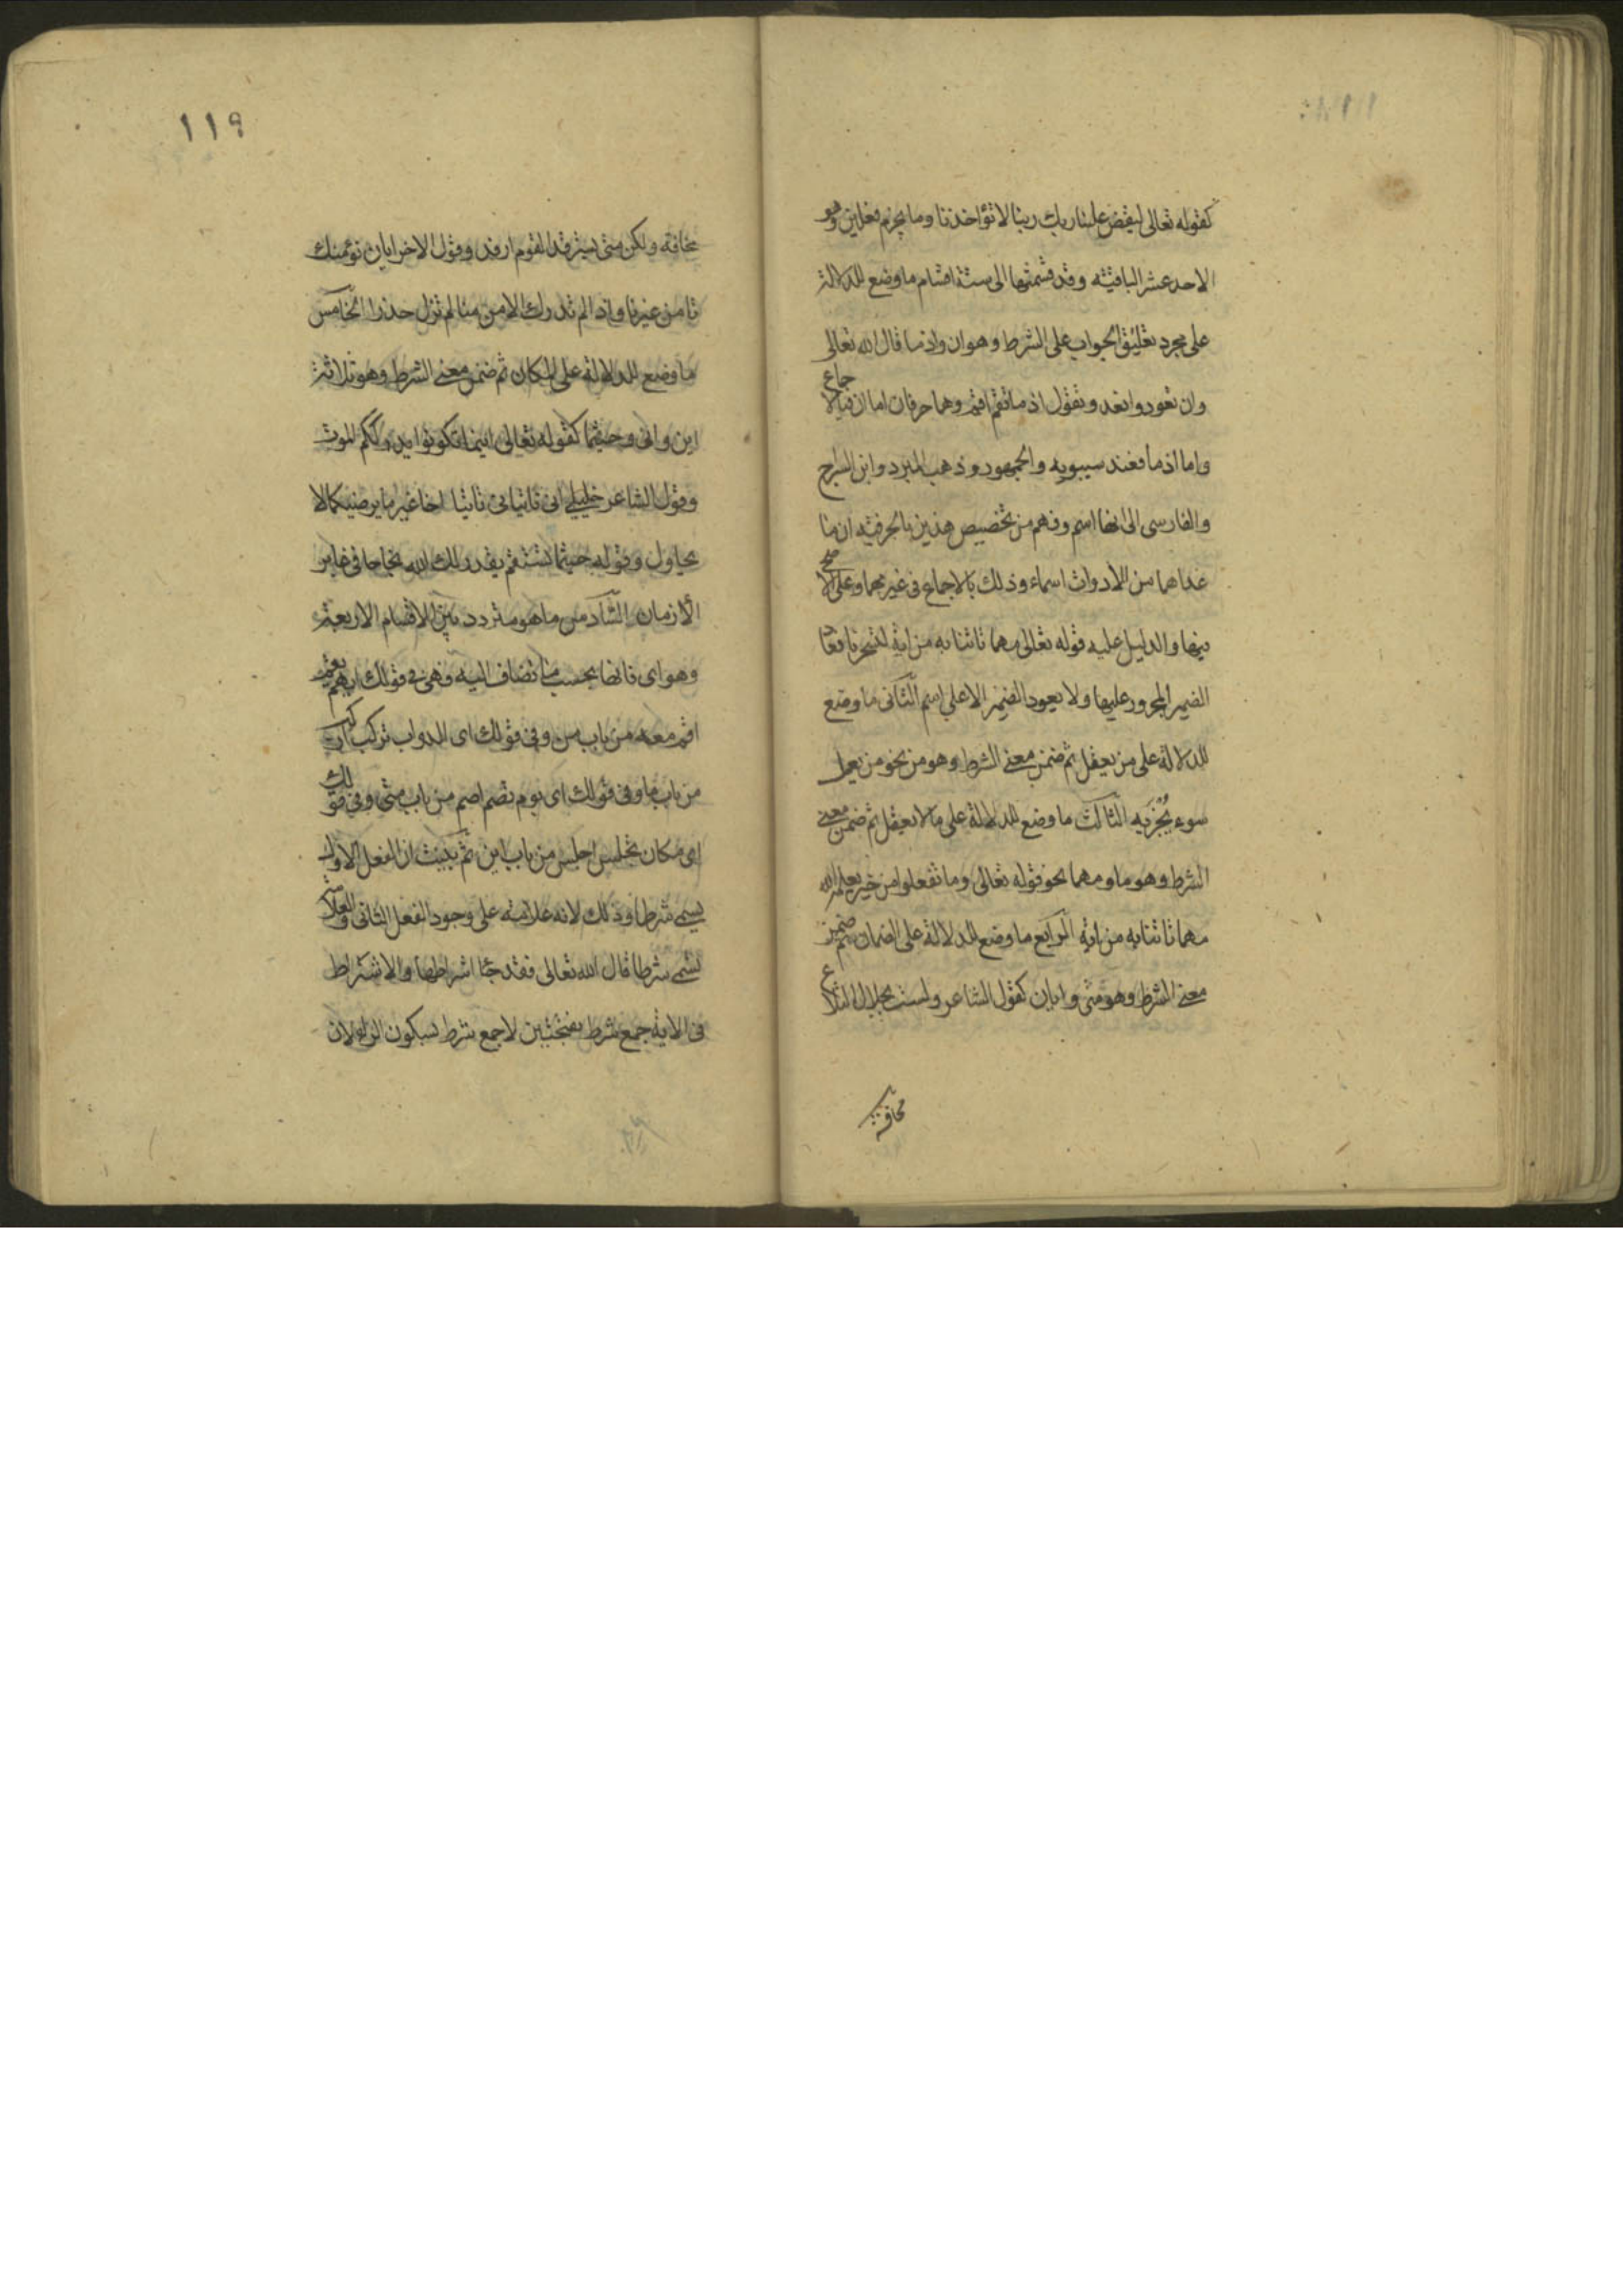 كقوله تعالى ليقض علينا ربك ربنا لا تؤاخذنا وما يجزم فعلين وهو
الاحد عشر الباقية وقد قسمتها الى ستة اقسام ما وضع للدلالة
على مجرد تعليق الجواب على الشرط وهو ان واذ ما قال الله تعالى
وان تعودوا نعد وتقول اذ ما تقم اقم وهما حرفان اما ان فبالاجماع
واما اذ ما فعند سيبويه والجمهور وذهب المبرد وابن السراج
والفارسى الى انها اسم وفهم من تخصيص هذين بالحرفية ان ما
عداهما من الادوات اسماء وذلك بالاجماع فى غير مهما وعلى الاصح
فيها والدليل عليه قوله تعالى مهما تاتنا به من اية لتسحرنا فعاد
الضمير المجرور عليها ولا يعود الضمير الا على اسم الثانى ما وضع
للدلالة على من يعقل ثم ضمن معنى الشرط وهو من نحو من يعمل
سوء يُجْزَ به الثالث ما وضع للدلالة على ما لا يعقل ثم ضمن معنى
الشرط وهو ما ومهما نحو قوله تعالى وما تفعلوا من خير يعلمه الله
مهما تاتنا به من اية الرابع ما وضع للدلالة على الضمان ثم ضمن
معنى الشرط وهو متى وايان كقول الشاعر ولست بحلال التلاع
مخافة
١١٩
مخافة ولكن متى يسترفد القوم ارفد وقول الاخر ايان نؤمنك
تامن غيرنا واذا لم تدرك الامن منا لم تزل حذرا الخامس
ما وضع للدلالة على المكان ثم ضمن معنى الشرط وهو ثلاثة
اين وانى وحيثما كقوله تعالى اينما تكونوا يدرككم الموت
وقول الشاعر خليلى انى تاتيانى تاتيا اخا غير ما يرضيكما لا
يحاول وقوله حيثما تستقم يقدر لك الله نجاحا فى غابر
الازمان السادس ما هو متردد بين الاقسام الاربعة
وهو اى فانها بحسب ما تضاف اليه فهى فى قولك ايهم يقم
اقم معه من باب من وفى قولك اى الدواب تركب اركب
من باب ما وفى قولك اى يوم تصم اصم من باب متى وفى قولك
اى مكان تجلس اجلس من باب اين ثم بينت ان الفعل الاول
يسمى شرطا وذلك لانه علامة على وجود الفعل الثانى والعلامة
تسمى شرطا قال الله تعالى فقد جئا اشراطها والاشتراط
فى الاية جمع شرط بفتحتين لا جمع شرط بسكون الراء لان